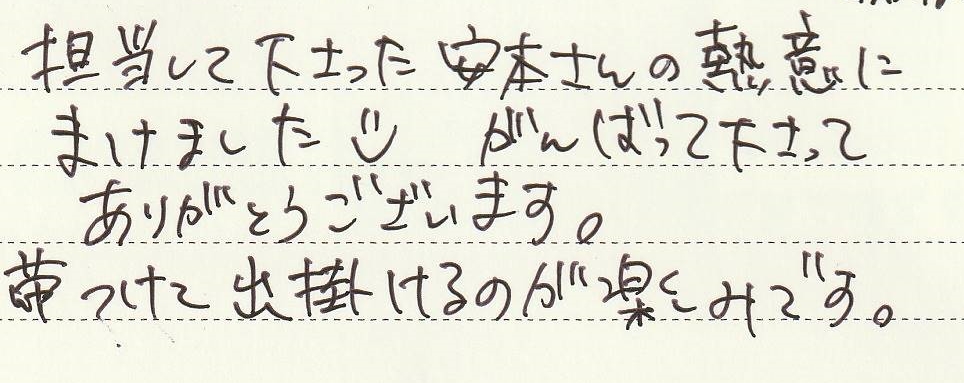 担当して下さった安本さんの熱意に
まけました がんばって下さって
ありがとうございます。
帯つけて出掛けるのが楽しみです。